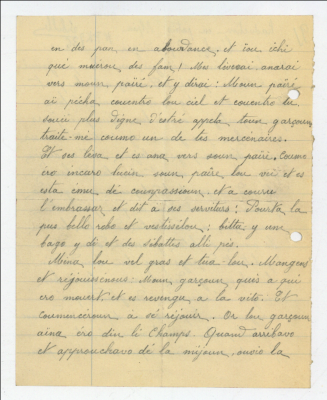 en des pan en aboudance, et ïou ichi
qué mueron des fan! Mes lèverai anarai
vers moun païré, et y dirai: Moun païré
ai pécha couentro lou ciel et couentro tu
souei plus digne d'estré appela toun garçoun
traite-mé coumo un de tes mercénaires.
Et ses leva et es ana vers soun païré. Coumo
ero incaro luein soun païre lou vic et es
esta emu dé coumpassioun, et a couru
l'embrassar et dit à ses serviturs: Pourta la
pus bello robo et vestissélou; butta y un
bago y dé et des sabattes alli pès.
Mena lou vel gras et tua lou. Mangens
et réjouissénous: Moun garçoun qu'és a qui
ero mouert et es revengu a la vito: Et
coumencéroun à sé réjouir. Or lou garçoun
aina éro din li champs. Quand arribavo
et approuchavo dé la méjoun, ouvic la